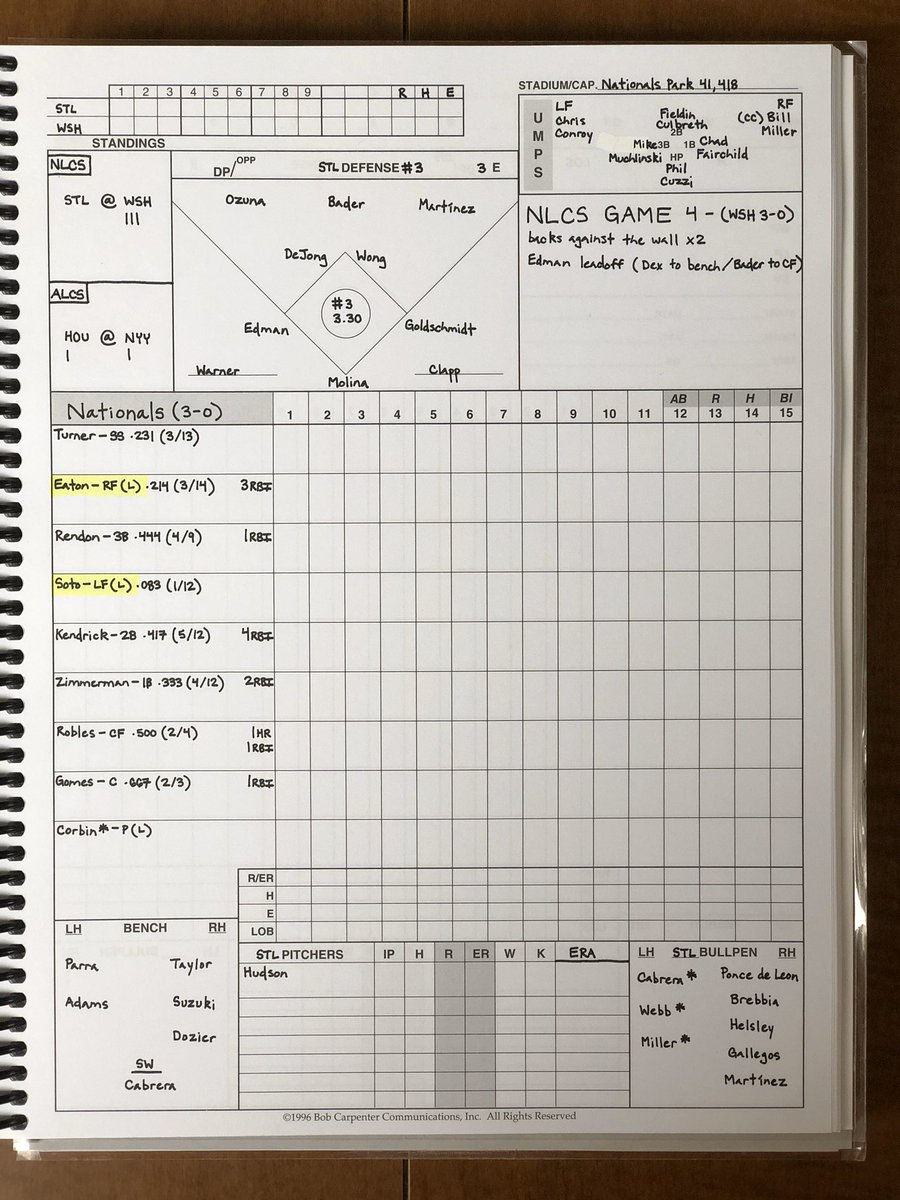 1 2 3 4 5 6 7 8 9 R H E
STL
WSH
STANDINGS
NLCS
STL @ WSH
III
ALCS
HOU @ NYY
I I
DP/OPP STL DEFENSE #3 3 E
Ozuna Bader Martínez
DeJong Wong
#3
3.30
Edman Goldschmidt
Warner Clapp
Molina
STADIUM/CAP. Nationals Park 41,418
UMPS
LF
Chris
Conroy
Fieldin
Culbreth
2B
RF
(cc) Bill
Miller
Mike 3B
Muchlinski
1B Chad
Fairchild
HP
Phil
Cuzzi
NLCS GAME 4 - (WSH 3-0)
backs against the wall x2
Edman leadoff (Dex to bench/Bader to CF)
Nationals (3-0) 1 2 3 4 5 6 7 8 9 10 11 12 13 14 15
AB R H BI
Turner - SS .231 (3/13)
Eaton - RF (L) .214 (3/14) 3RBI
Rendon - 3B .444 (4/9) 1RBI
Soto - LF (L) .083 (1/12)
Kendrick - 2B .417 (5/12) 4RBI
Zimmerman - 1B .333 (4/12) 2RBI
Robles - CF .500 (2/4) 1HR
1RBI
Gomes - C .667 (2/3) 1RBI
Corbin* - P (L)
R/ER
H
E
LOB
LH BENCH RH
Parra Taylor
Adams Suzuki
Dozier
SW
Cabrera
STL PITCHERS IP H R ER W K ERA
Hudson
LH STL BULLPEN RH
Cabrera * Ponce de Leon
Webb * Brebbia
Miller * Helsley
Gallegos
Martínez
©1996 Bob Carpenter Communications, Inc. All Rights Reserved